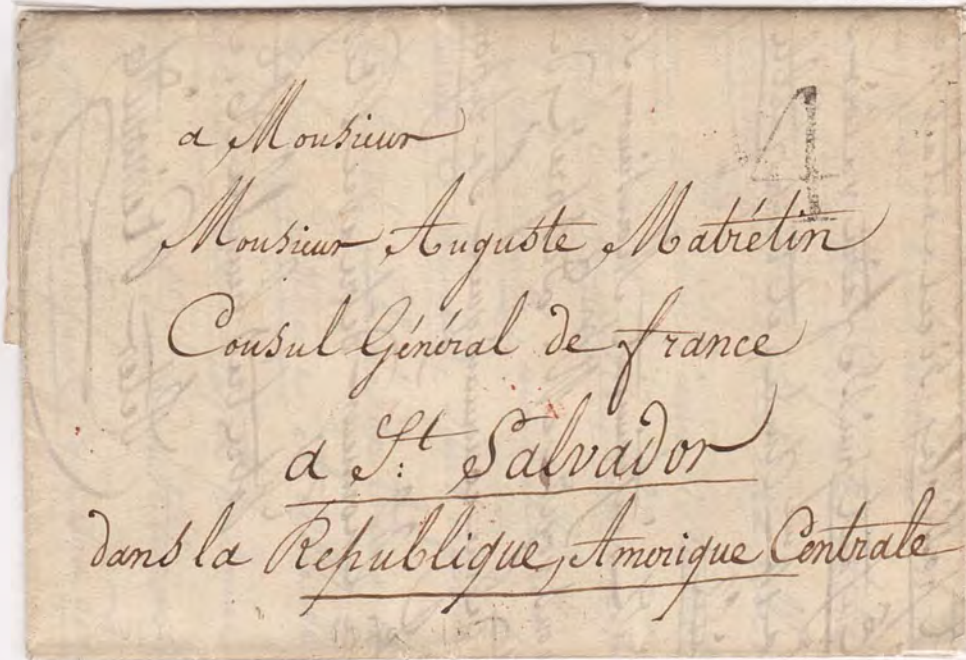 4
a Monsieur
Monsieur Auguste Matrétin
Consul Général de france
a St. Salvador
dans la Republique, Amerique Centrale